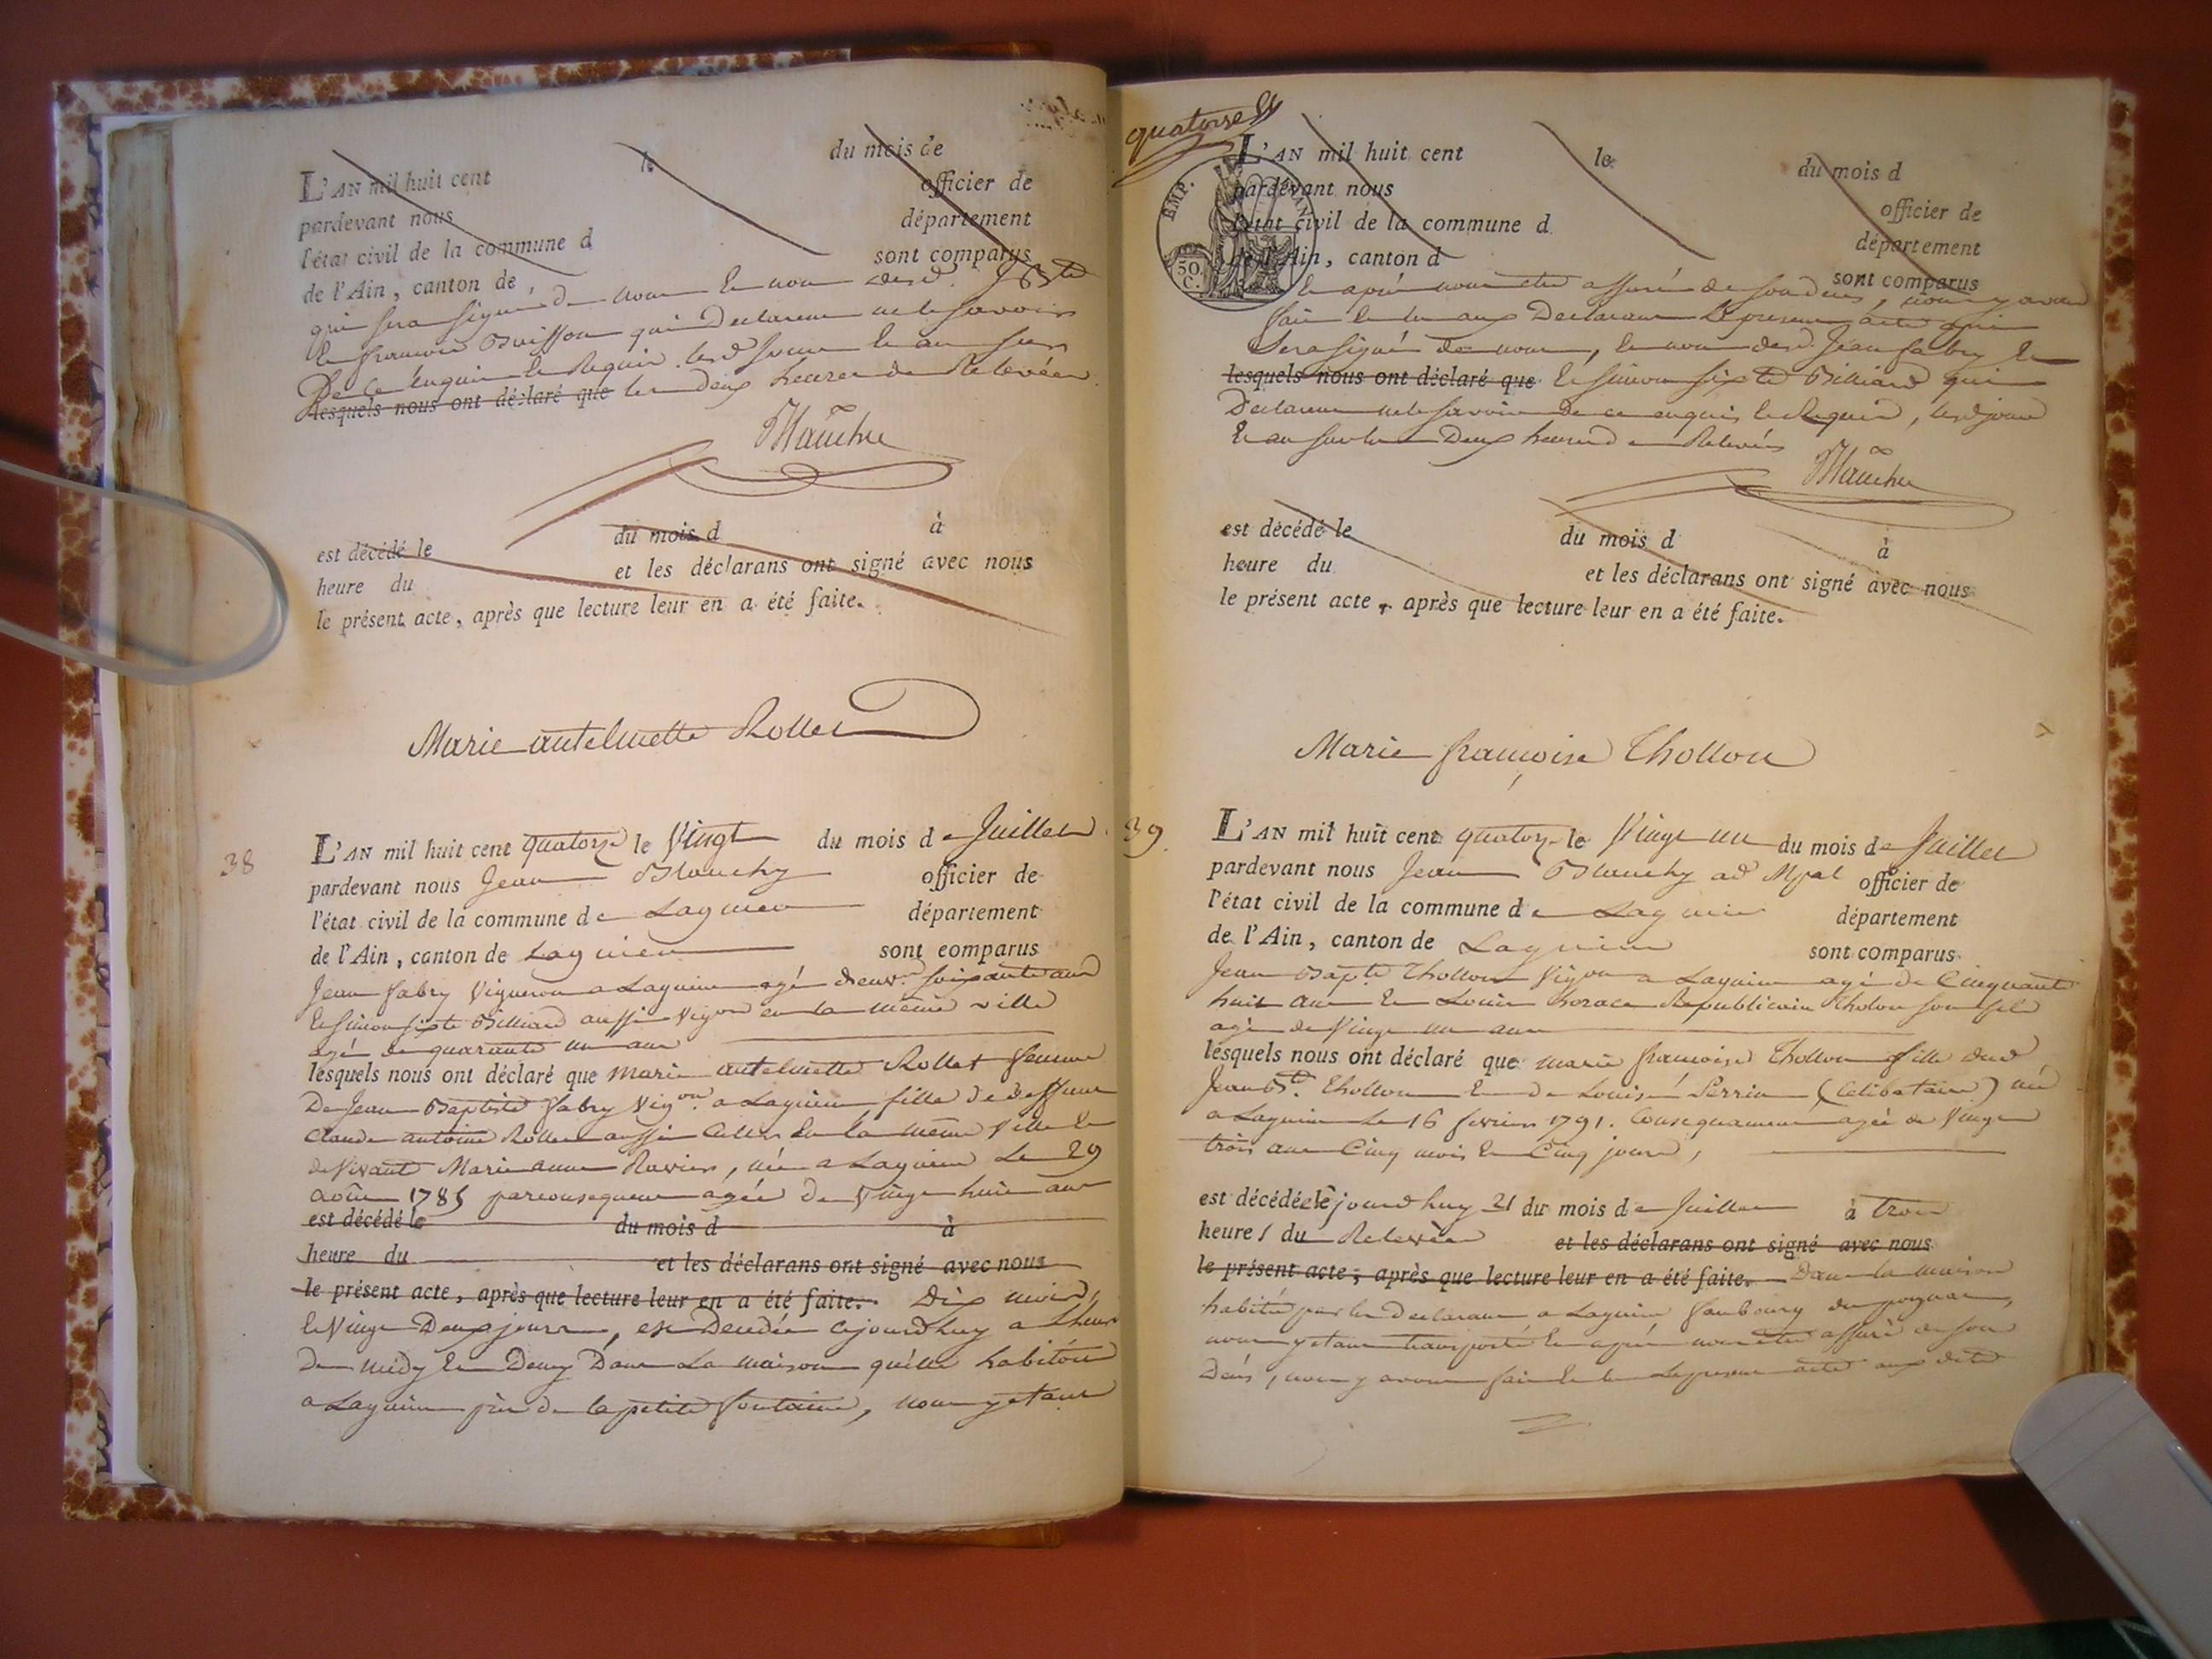 L'AN mil huit cent le du mois de
pardevant nous officier de
l'état civil de la commune d département
de l'Ain, canton de, sont comparus
qui sera signé de nous et non desd. J Bte
et francois Buisson qui declarent ne le savoir
De ce enquis et Requis lesd jour et an sur
lesquels nous ont déclaré que les deux heures de Relevée
Blanchy
est décédé le du mois d à
heure du et les déclarans ont signé avec nous
le présent acte, après que lecture leur en a été faite.
Marie antelmette Rollet
38
L'AN mil huit cent quatorze le Vingt du mois de Juillet
pardevant nous Jean Blanchy officier de
l'état civil de la commune de Lagnieu département
de l'Ain, canton de Lagnieu sont comparus
Jean fabry Vigneron a Lagnieu agé d'env.on soixante ans
Et simon sixte Billiard aussi Vig.on en la même ville
agé de quarante un ans
lesquels nous ont déclaré que Marie antelmette Rollet femme
De Jean Baptiste fabry Vig.on a Lagnieu fille de deffunt
Claude antoine Rollet aussi Cult.r En la même Ville Et
de Vivante Marie anne Ravier, née a Lagnieu Le 29
août 1785 par consequent agée De Vingt huit ans
est décédé le du mois d à
heure du et les déclarans ont signé avec nous
le présent acte, après que lecture leur en a été faite. Dix mois,
et Vingt Deux jours, est Decedée cejourd'huy a l'heure
de midy et Demy Dans La maison qu'elle habitoit
a Lagnieu près de la petite fontaine, nous y etant
quatorze
EMP. FRAN.
50. C.
L'AN mil huit cent le du mois d
pardevant nous officier de
l'état civil de la commune d département
de l'Ain, canton d sont comparus
et après nous etre assuré de son deces, nous y avons
fait lecture aux Declarans Le present acte qui
Sera signé de nous, et non desd. Jean fabry et
lesquels nous ont déclaré que Et simon sixte Billiard qui
Declarent ne le savoir de ce enquis et Requis, lesd jour
Et an sur les Deux heures de Relevée
Blanchy
est décédé le du mois d à
heure du et les déclarans ont signé avec nous
le présent acte, après que lecture leur en a été faite.
Marie françoise Thollon
39
L'AN mil huit cent quatorze le Vingt un du mois de Juillet
pardevant nous Jean Blanchy ad Mpal officier de
l'état civil de la commune de Lagnieu département
de l'Ain, canton de Lagnieu sont comparus
Jean Bapte Thollon Vigon a Lagnieu agé de Cinquante
huit ans Et Louis horace Republicain Tholon son fils
agé de Vingt un ans
lesquels nous ont déclaré que marie francoise Thollon fille dud
Jean Bte Thollon Et de Louise Perrin (Celibataire) née
a Lagnieu Le 16 fevrier 1791. Consequament agée de Vingt
trois ans Cinq mois Et Cinq jours,
est décédée cejourd'huy 21 du mois de Juillet à trois
heures du Relevée et les déclarans ont signé avec nous
le présent acte, après que lecture leur en a été faite. Dans la maison
habitée par les Declarans a Lagnieu faubourg du
nous y etant transporté Et après nous etre assuré de son
Decés, nous y avons fait lecture Le present acte aux dits